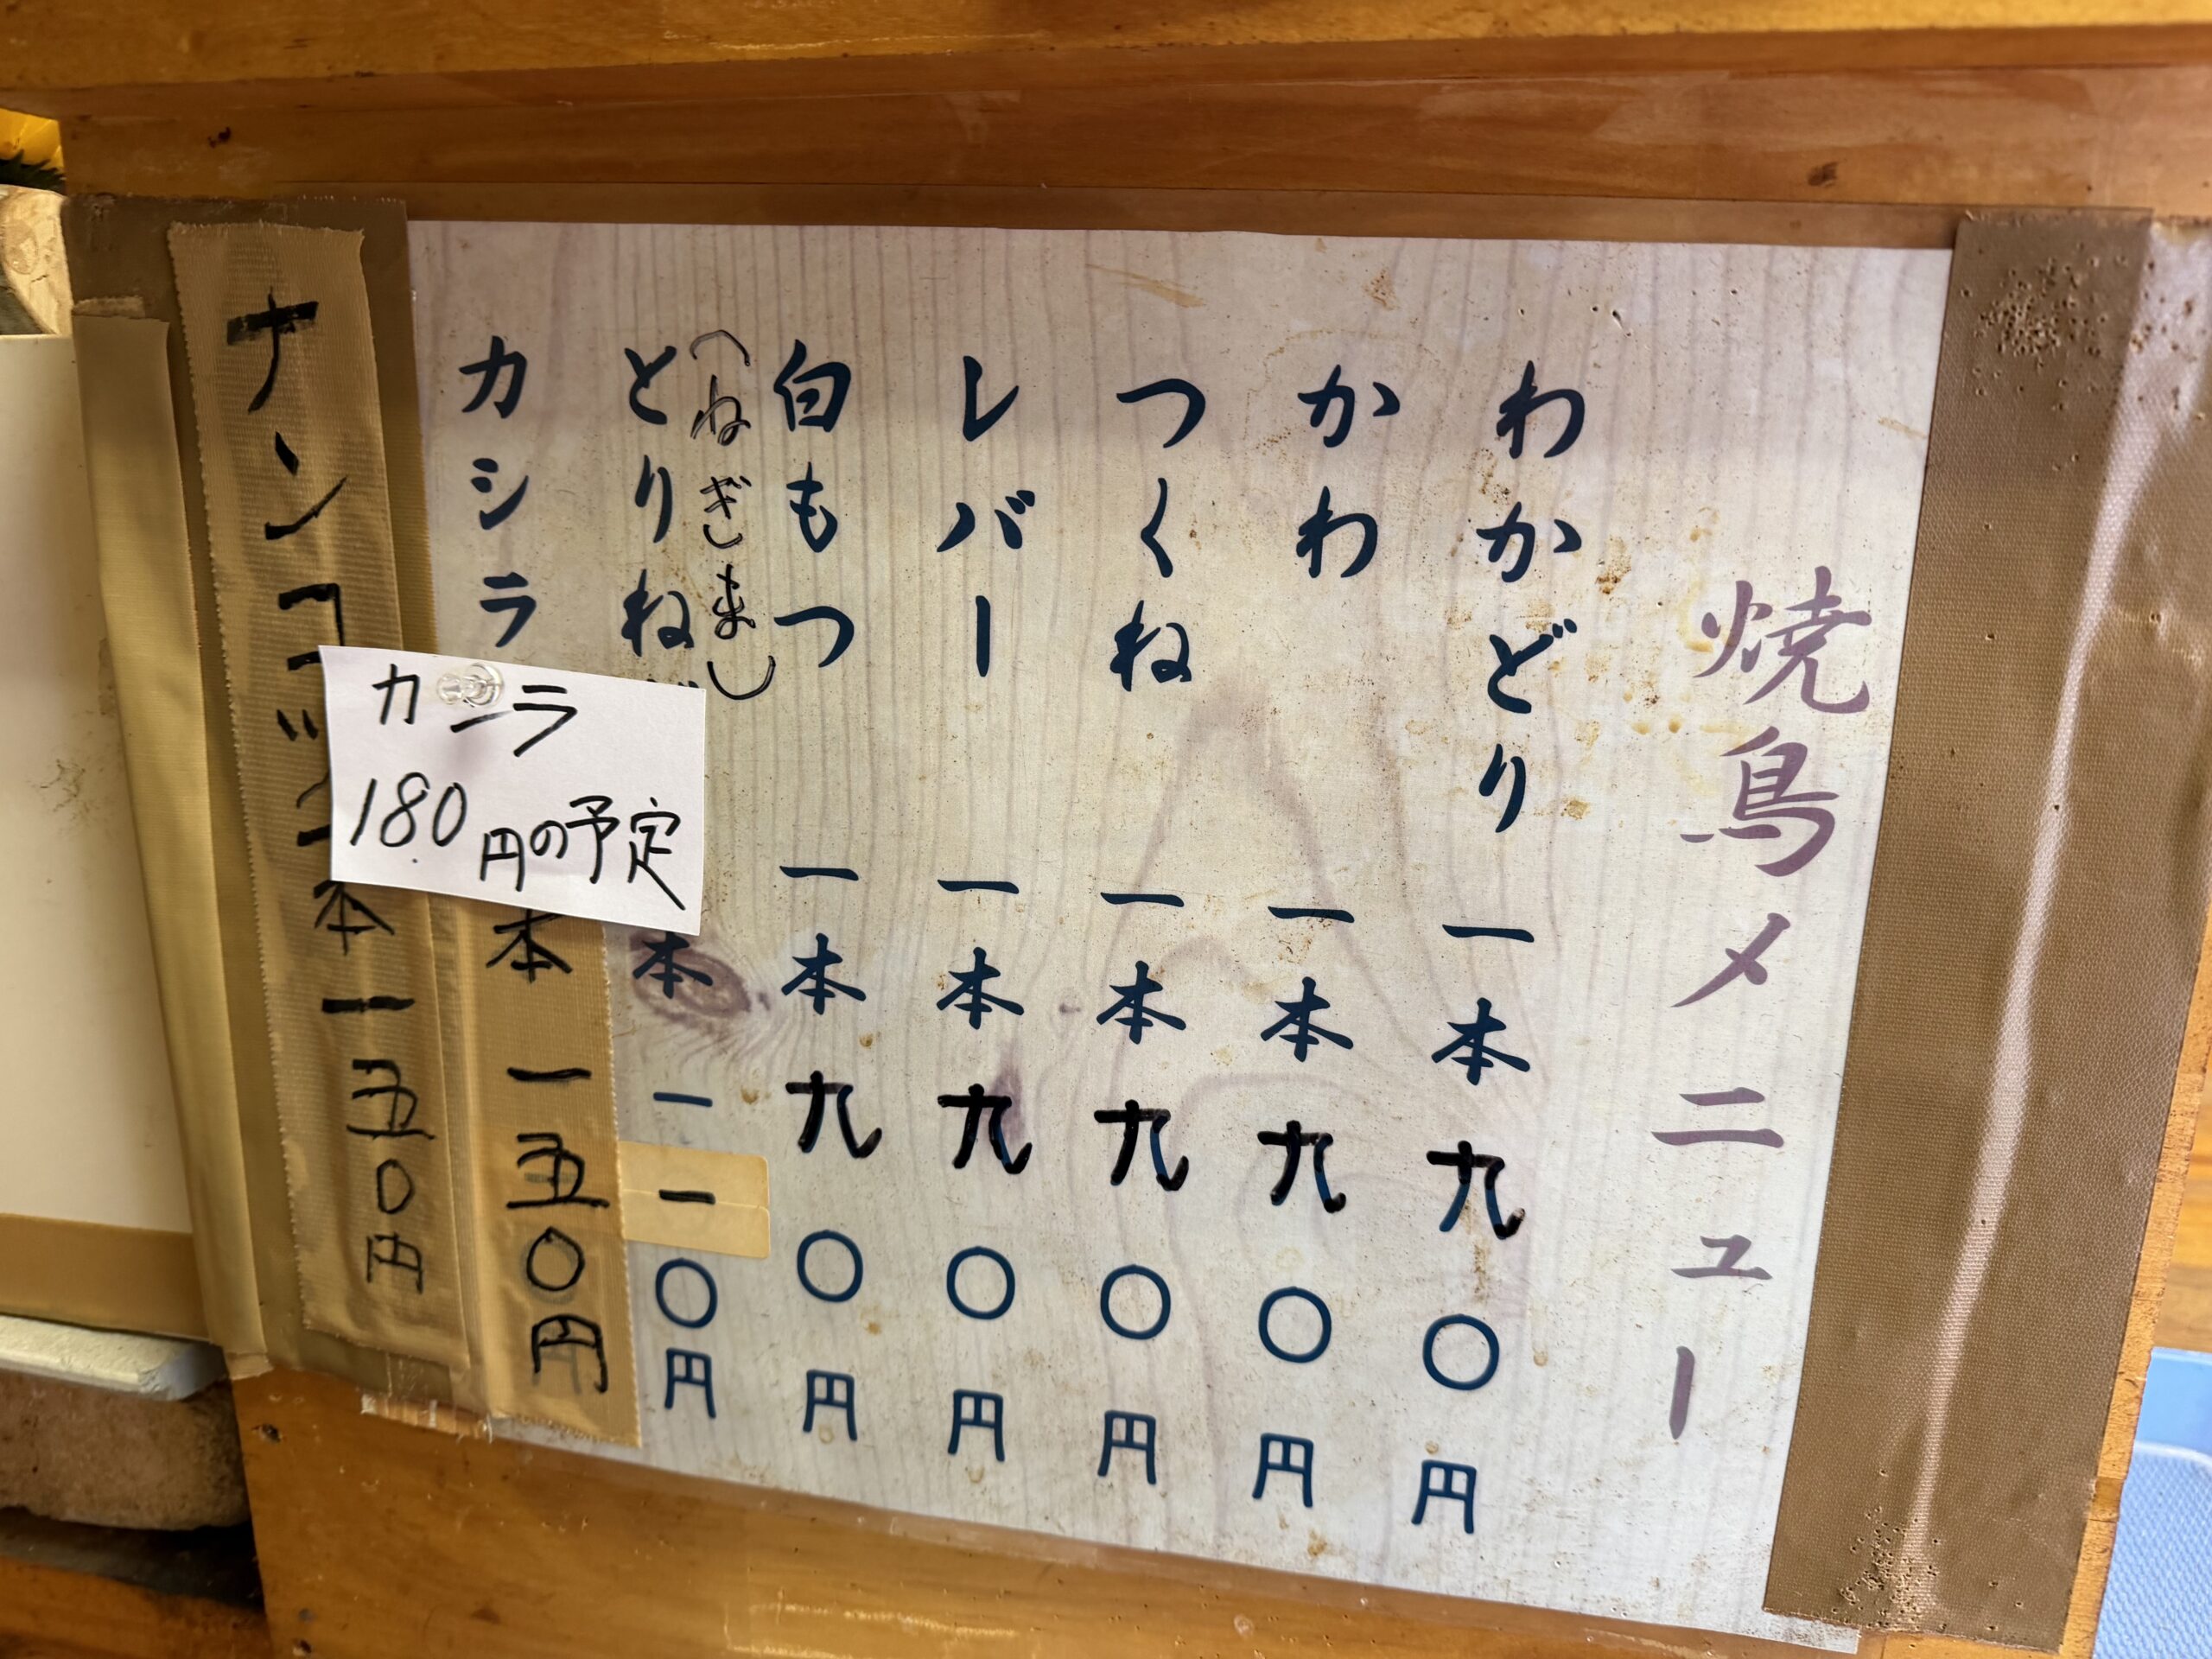 焼鳥メニュー
わかどり 一本九〇円
かわ 一本九〇円
つくね 一本九〇円
レバー 一本九〇円
白もつ 一本九〇円
(ねぎま)
とりねぎ 本一一〇円
カシラ 本一五〇円
ナンコツ 一本一五〇円
カシラ
180円の予定